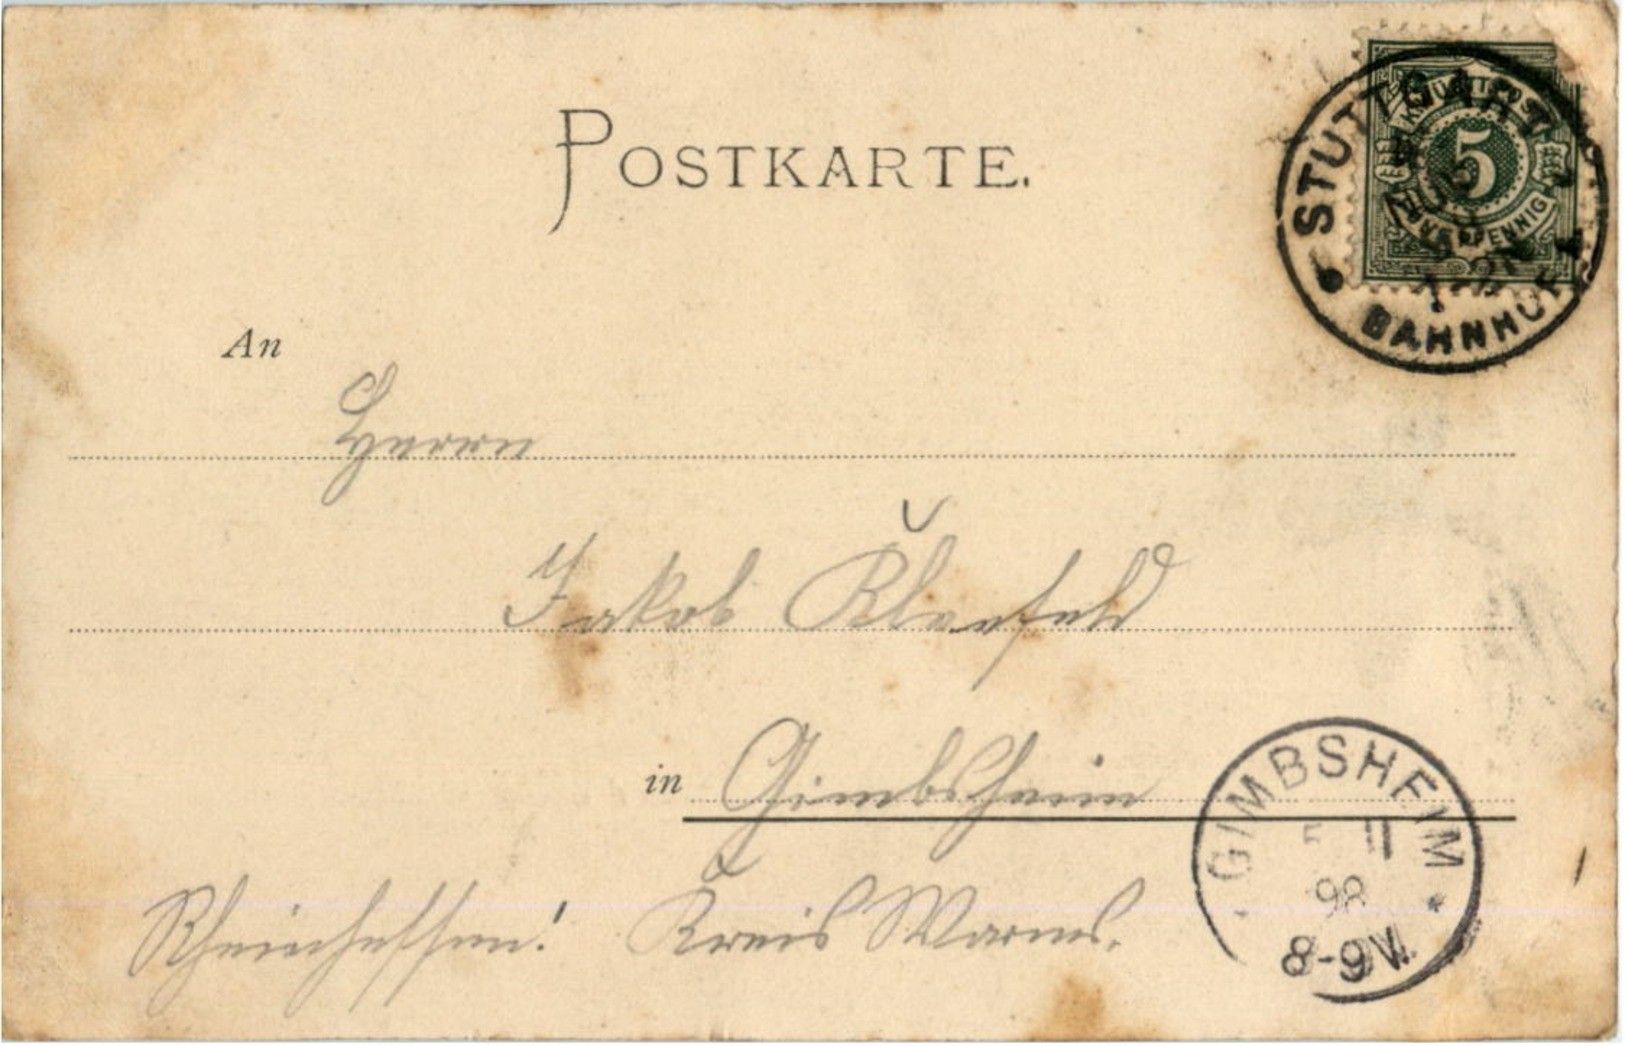 POSTKARTE.
STUTTGART
BAHNHOF
5
PFENNIG
An
Herrn
Jakob Kleefeld
in Gimbsheim
GIMBSHEIM
5 11
98
8-9V.
Rheinhessen! Kreis Worms.